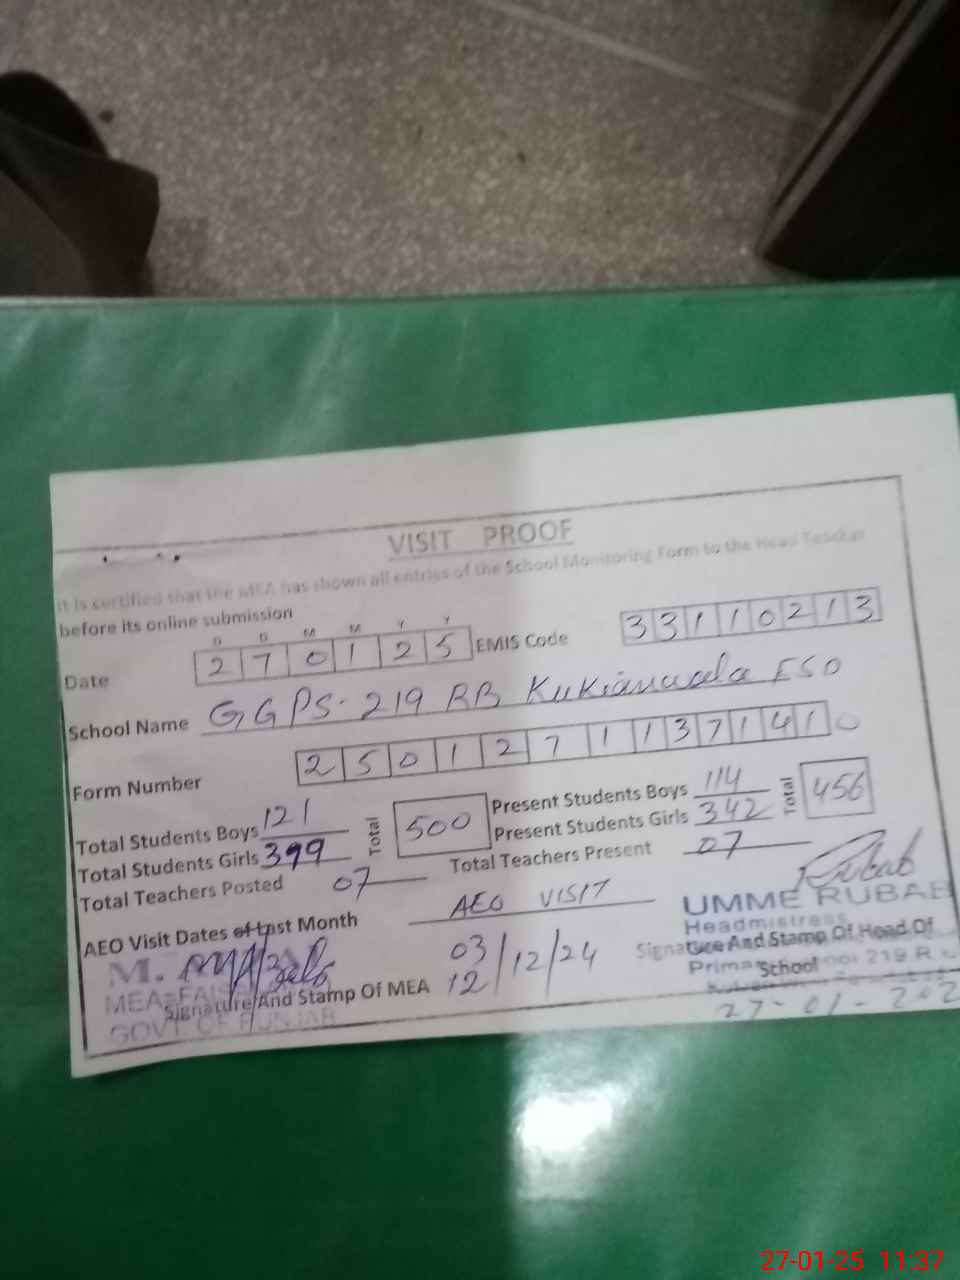 VISIT PROOF
It is certified that the MEA has shown all entries of the School Monitoring Form to the Head Teacher
before its online submission
D D M M Y Y
Date 2 7 0 1 2 5 EMIS Code 3 3 1 1 0 2 1 3
School Name GGPS. 219 RB Kukianwala FSD
Form Number 2 5 0 1 2 7 1 1 3 7 1 4 1 0
Total Students Boys 121 Total 500 Present Students Boys 114 Total 456
Total Students Girls 399 Present Students Girls 342
Total Teachers Posted 07 Total Teachers Present 07
Rubab
AEO Visit Dates of Last Month AEO VISIT
UMME RUBAB
Headmistress
03/12/24
12
Signature And Stamp Of Head Of
School
219 R
M.
MEA-
Signature And Stamp Of MEA
GOVT OF PUNJAB
27-01-202
27-01-25 11:37